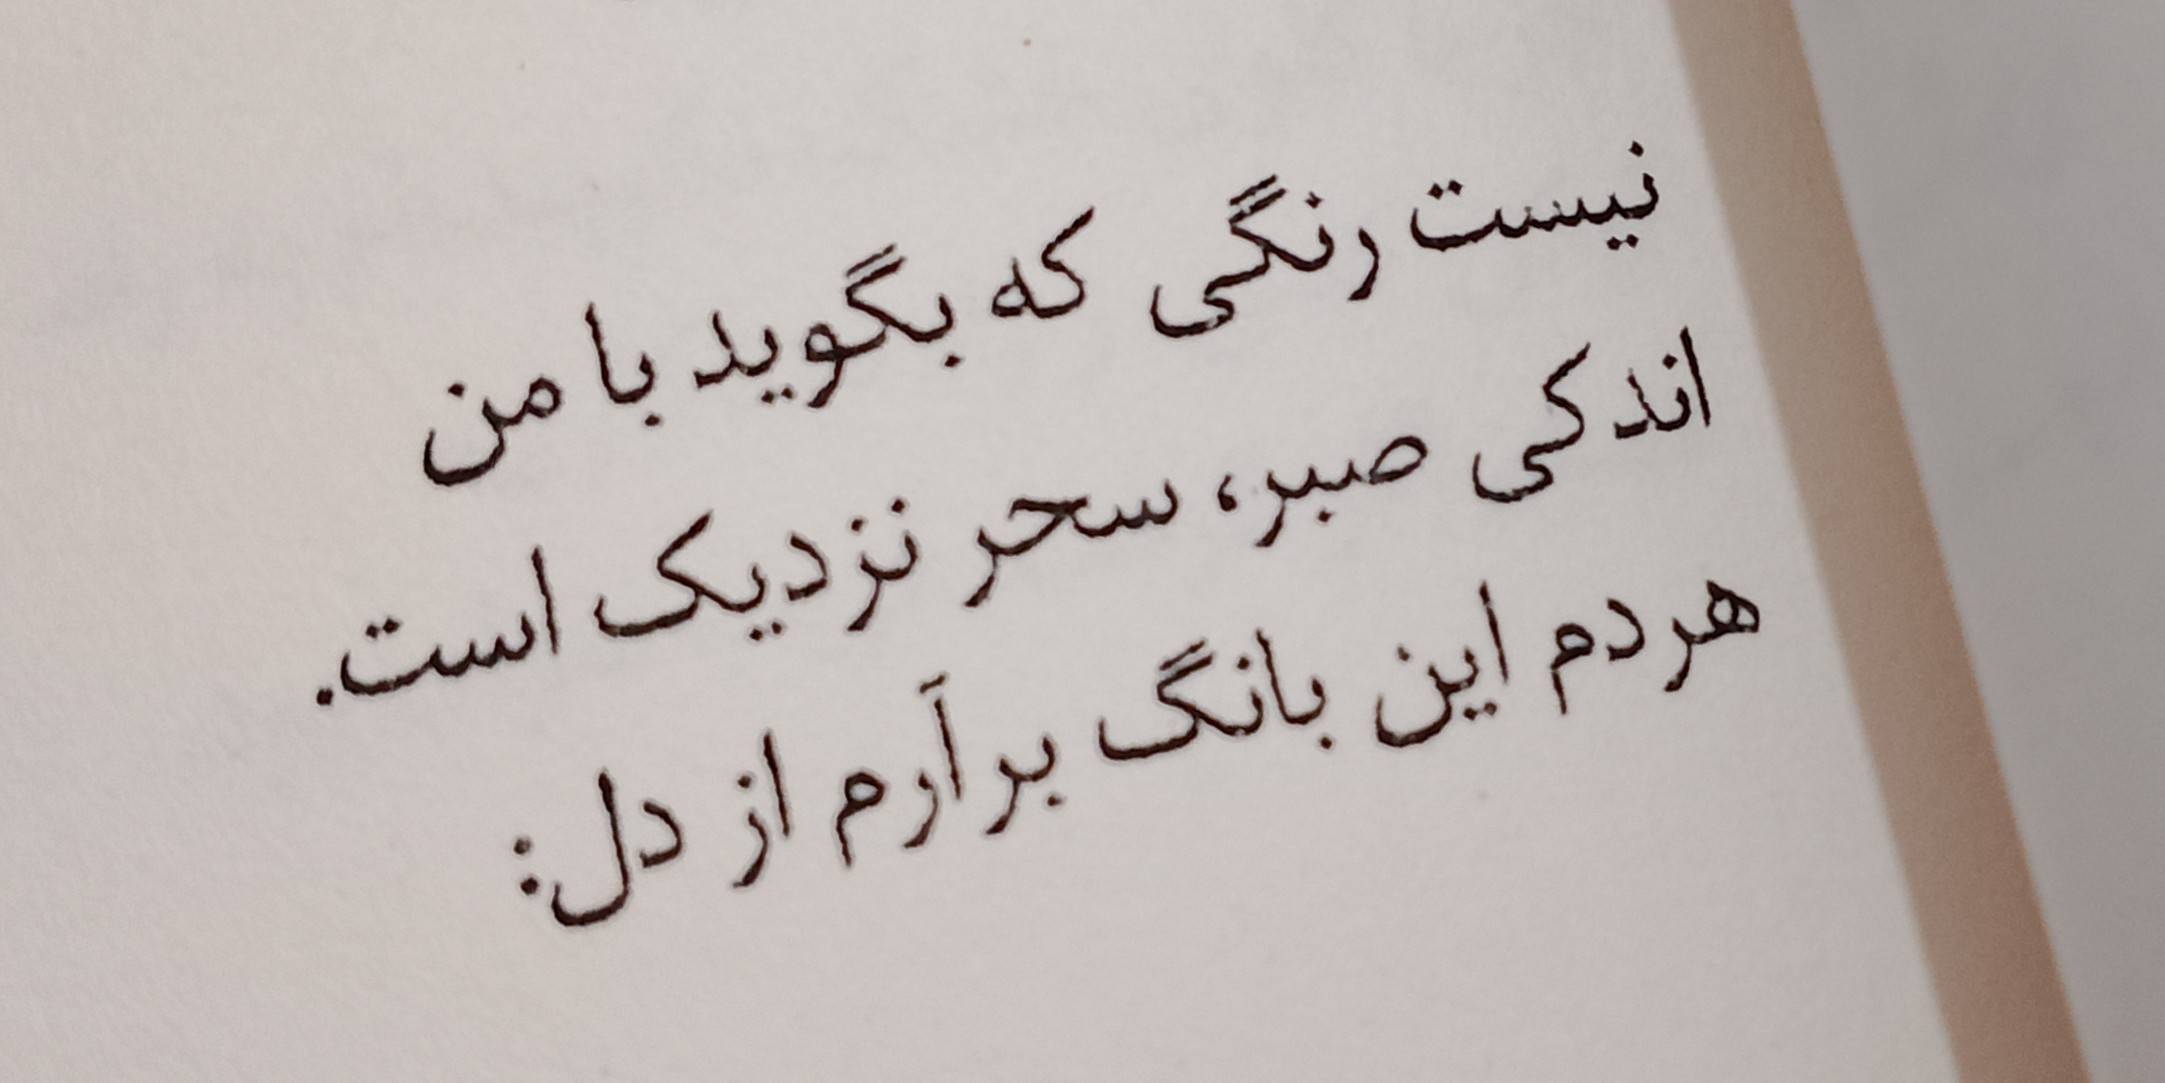 نیست رنگی که بگوید با من
اندکی صبر، سحر نزدیک است.
هردم این بانگ برآرم از دل: